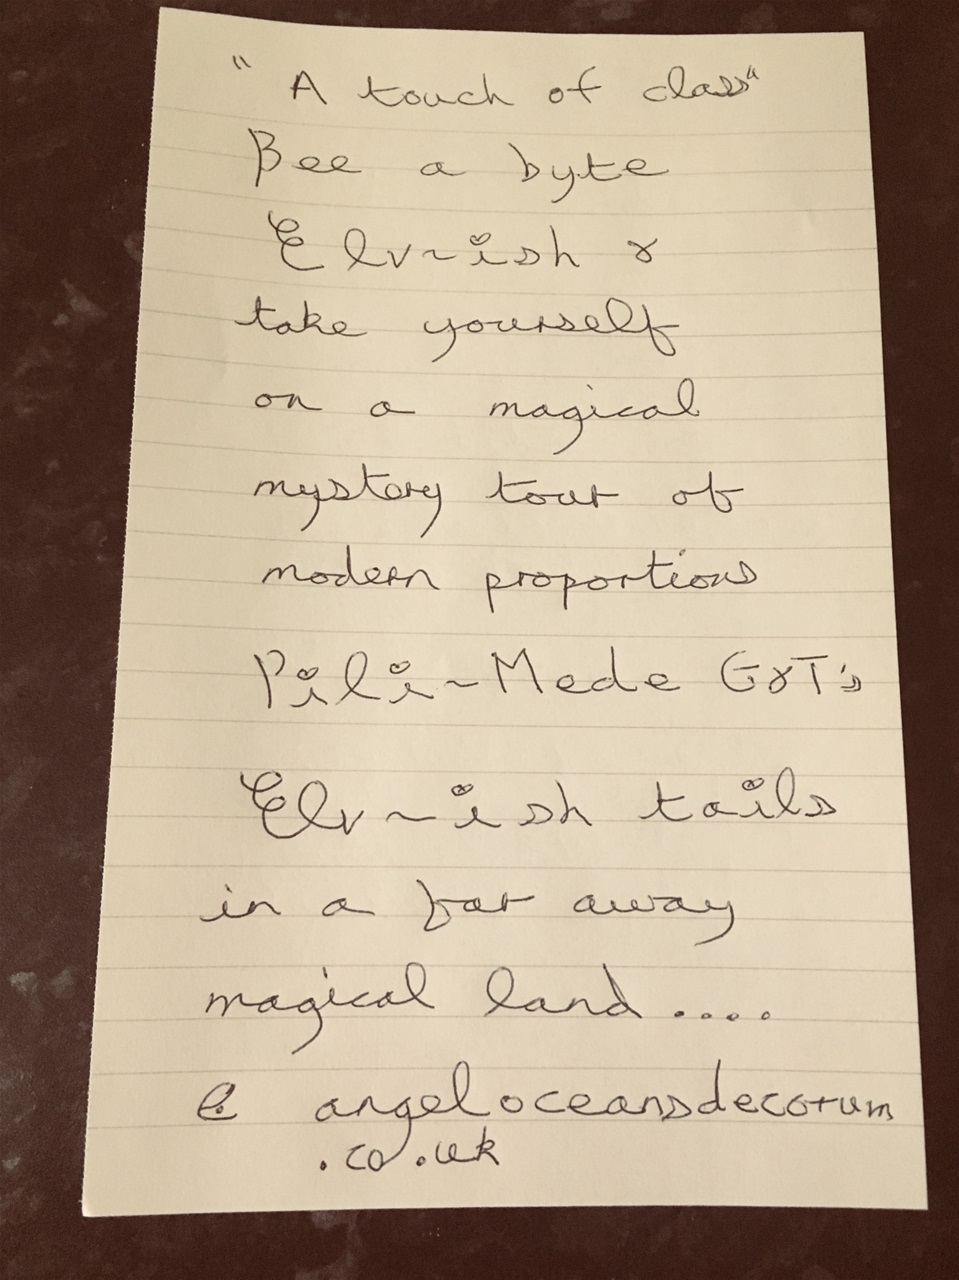 "A touch of class"
Bee a byte
Elv~ish &
take yourself
on a magical
mystery tour of
modern proportions
Pili~Made G&T's
Elv~ish tails
in a far away
magical land ....
@ angeloceansdecorum
.co.uk